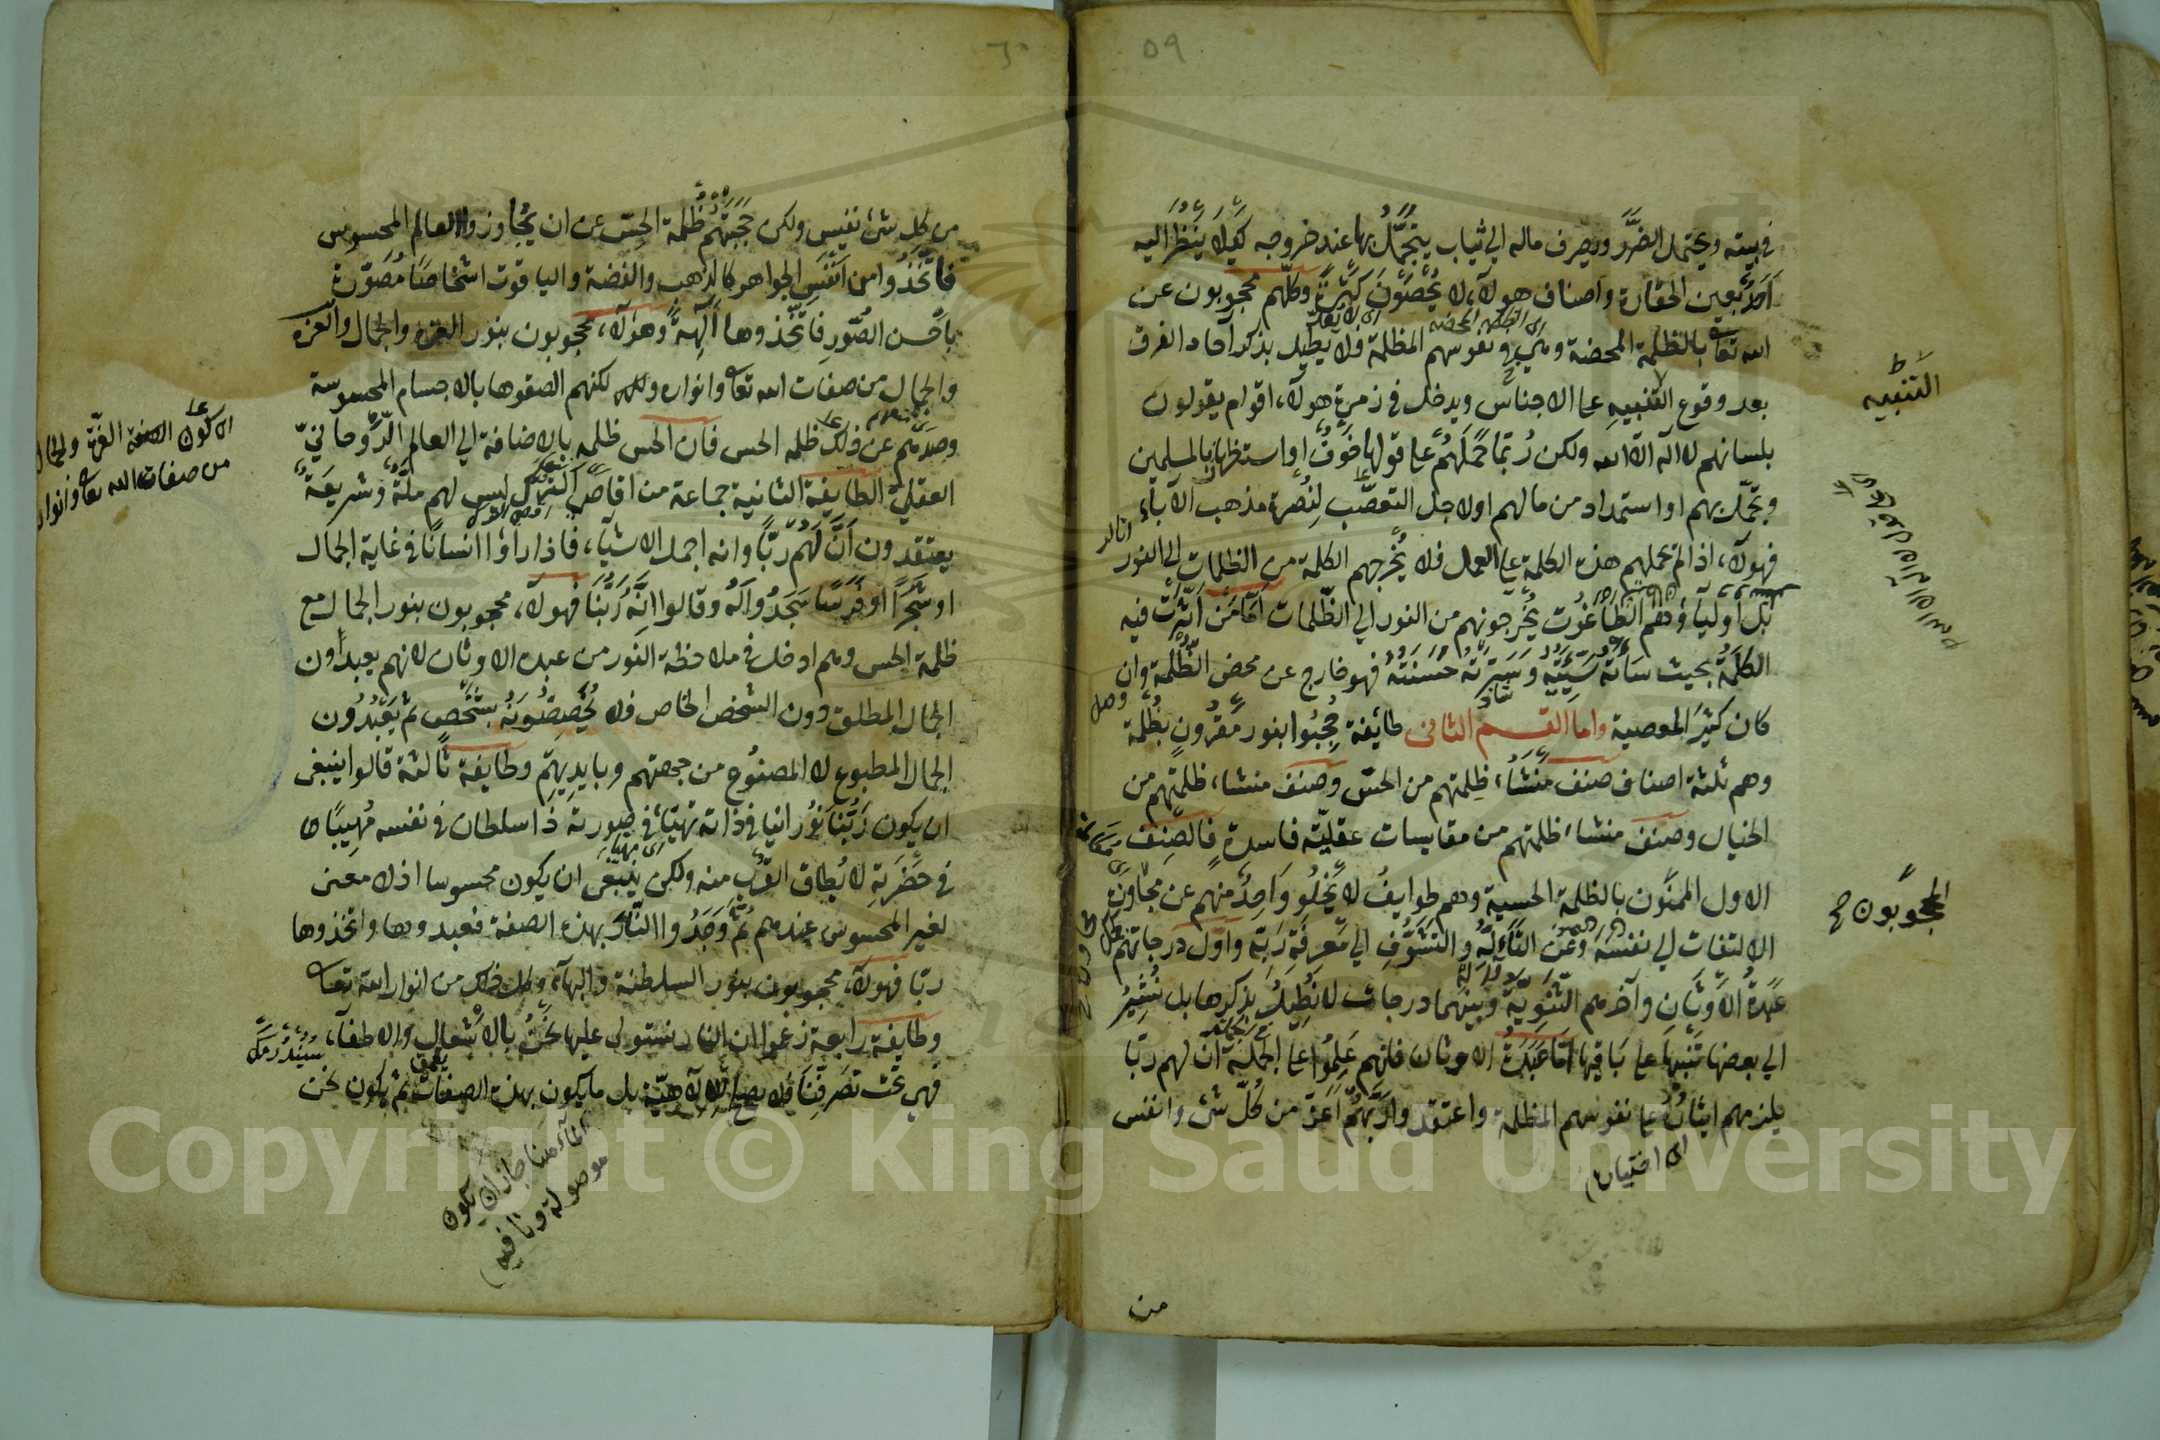 ٥٩
في بيته ويحتمل الضرر ويصرف ماله الي ثياب يتجمل بها عند خروجه كيلا ينظر اليه
احد بعين الحقارة واصناف هولآء لا يحصون كثرة وكلهم محجوبون عن
الله تعا بالظلمة المحضة وهي نفوسهم المظلمة ولا نطيل بذكر آحاد الفرق
بعد وقوع التنبيه على الاجناس ويدخل في زمرة هولآء اقوام يقولون
بلسانهم لا اله الا الله ولكن ربما حملهم على قولها خوف او استظهار بالمسلمين
وتجمل بهم او استمداد من مالهم او لاجل التعصب لنصرة مذهب الآباء
فهولآء اذا لم تحملهم هذه الكلمة على العمل فلا يخرجهم الكلمة من الظلمات الى النور
بل اولياؤهم الطاغوت يخرجونهم من النور الي الظلمات اما من اثرت فيه
الكلمة بحيث ساءته سيئته وسرته حسنته فهو خارج عن محض الظلمة وان
كان كثير المعصية واما القسم الثانى طائفة حجبوا بنور مقرون بظلمة
وهم ثلثة اصناف صنف منشاء ظلمتهم من الحس وصنف منشاء ظلمتهم من
الخيال وصنف منشاء ظلمتهم من مقايسات عقلية فاسدة فالصنف
الاول الممنون بالظلمة الحسية وهم طوايف لا يخلو واحد منهم عن مجاوزة
الالتفات الي نفسه وعن التأله والتشوف الي معرفة ربه واول درجاتهم
عبدة الاوثان وآخرهم الثنوية وبينهما درجات لا نطيل بذكرها بل نشير
الي بعضها تنبيها على باقيها اما عبدة الاوثان فانهم علموا على الجملة ان لهم ربا
يلزمهم ايثاره على نفوسهم المظلمة واعتقدوا ربهم اعز من كل شئ وانفس
اى اختياره
من
التنبيه
المحجوبون صح
٦٠
من كل شئ نفيس ولكن حجبتهم ظلمة الحس عن ان يجاوزوا العالم المحسوس
فاتخذوا من انفس الجواهر كالذهب والفضة والياقوت اشخاصا مصورة
باحسن الصور فاتخذوها آلهة وهولآء محجوبون بنور العزة والجمال والعزة
والجمال من صفات الله تعا وانواره لكنهم الصقوها بالاجسام المحسوسة
وصدهم عن ذلك ظلمة الحس فان الحس ظلمة بالاضافة الي العالم الروحاني
العقلي الطايفة الثانية جماعة من اقاصي الترك ليس لهم ملة وشريعة
يعتقدون ان لهم ربا وانه اجمل الاشياء فاذا راوا انسانا في غاية الجمال
او شجرا او فرسا سجدوا له وقالوا انه ربنا فهولآء محجوبون بنور الجمال مع
ظلمة الحس وهم ادخل في ملاحظة النور من عبدة الاوثان لانهم يعبدون
الجمال المطلق دون الشخص الخاص فلا يخصصونه بشخص ثم يعبدون
الجمال المطبوع لا المصنوع من جهتهم وبايديهم وطايفة ثالثة قالوا ينبغى
ان يكون ربنا نورانيا في ذاته بهيا في صورته ذا سلطان في نفسه مهيبا
في حضرته لا يطاق القرب منه ولكن ينبغى ان يكون محسوسا اذ لا معنى
لغير المحسوس عندهم ثم وجدوا النار بهذه الصفة فعبدوها واتخذوها
ربا فهولآء محجوبون بنور السلطنة والبهاء وكل ذلك من انوار الله تعا
وطايفة رابعة زعموا ان النار نستولي عليها نحن بالاشعال والاطفاء
فهي تحت تصرفنا فلا يصلح للالهية بل ما يكون بهذه الصفات ثم يكون نحن
اى كون الصفة العزة والجمال
من صفات الله تعا وانواره
يكون
موصولة ونافية